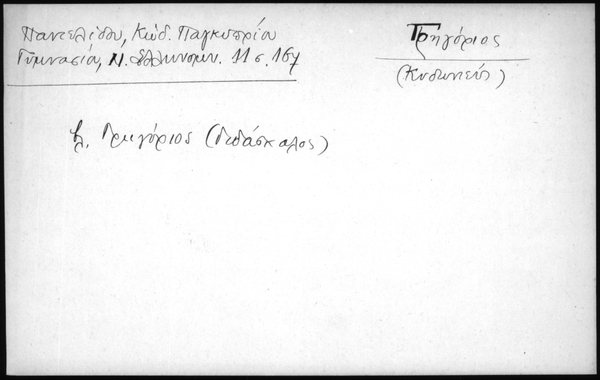 Παντελίδου, Κώδ. Παγκυπρίου
Γυμνασίου, Ν. Ἑλληνομν. 11 σ. 167
Γρηγόριος
(Κυδωνιεύς)
βλ. Γρηγόριος (διδάσκαλος)